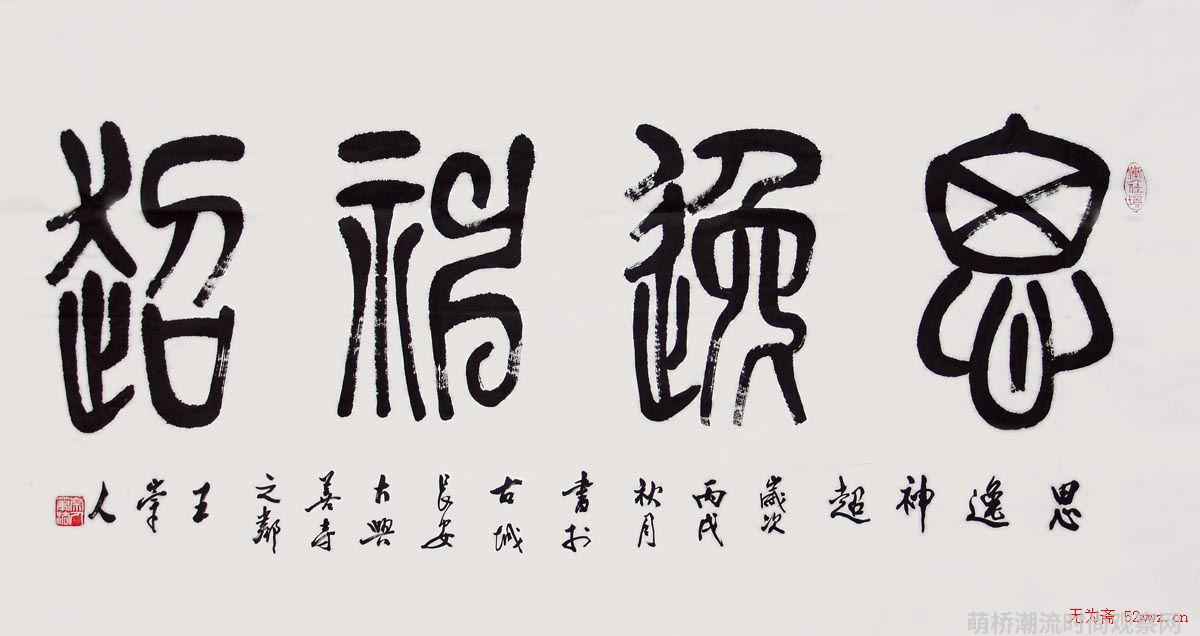 思逸神超
思逸神超歲次丙戌秋月書於古城長安大興善寺之鄰王崇人
无为斋 52wwz.cn
萌桥潮流时尚观察网